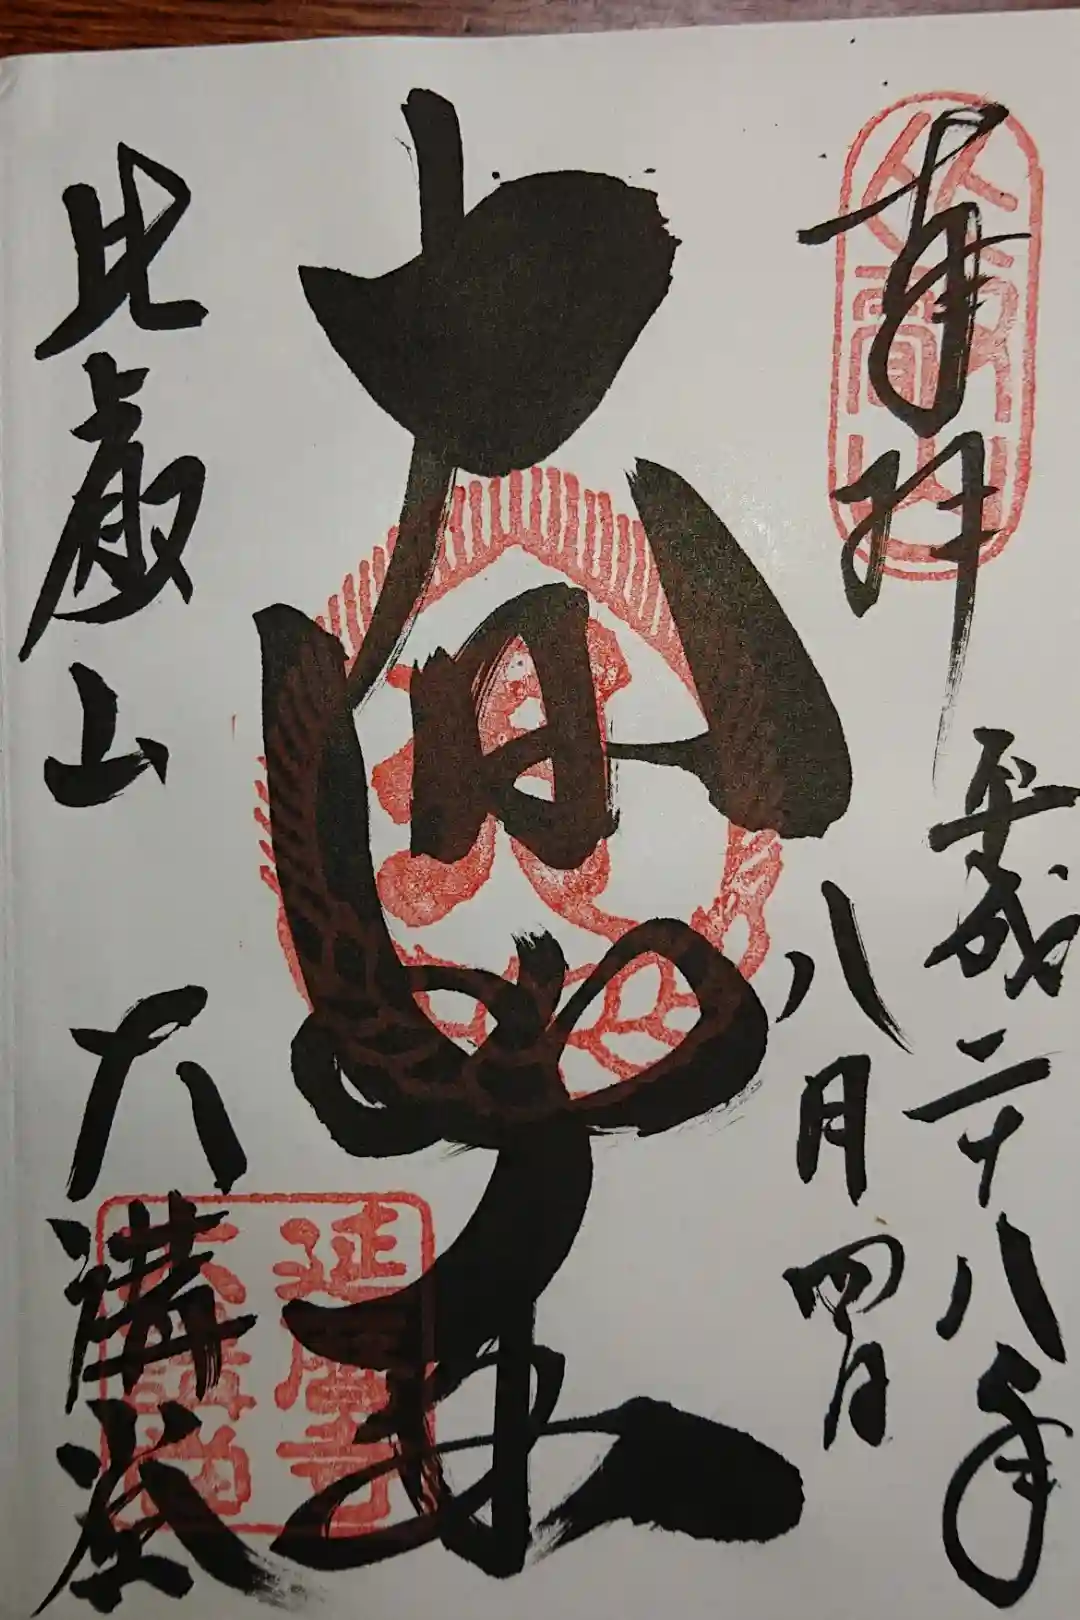 奉拝
平成二十八年
八月四日
大日如来
比叡山 大講堂
延暦寺
大講堂